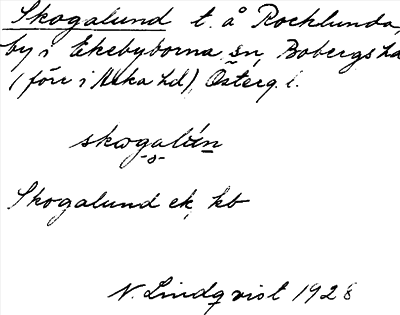 Skogalund t. å Rocklunda,
by i Ekebyborna sn, Bobergs hd
(förr i Aska hd), Österg. l.
skogalùn
Skogalund ek, kb
N. Lindqvist 1928